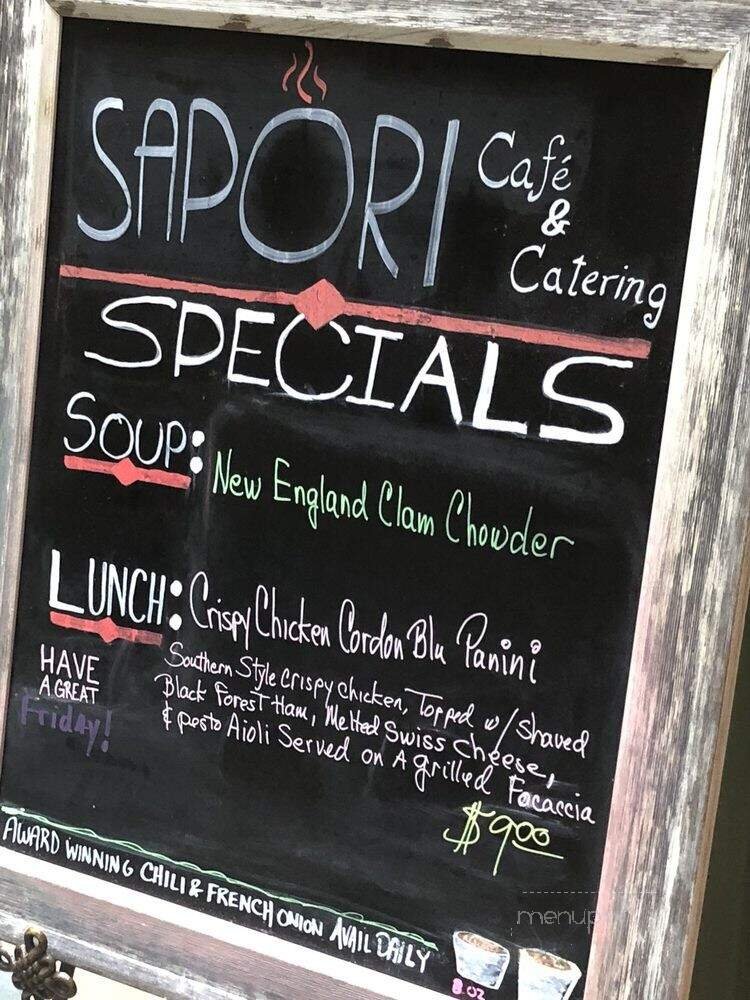 SAPORI Café
&
Catering
SPECIALS
SOUP: New England Clam Chowder
LUNCH: Crispy Chicken Cordon Blu Panini
Southern Style crispy chicken, Topped w/ Shaved
Black Forest Ham, Melted Swiss cheese,
& pesto Aioli Served on A grilled Focaccia
$9.00
HAVE
A GREAT
Friday!
AWARD WINNING CHILI & FRENCH ONION AVAIL DAILY
8 OZ
menup